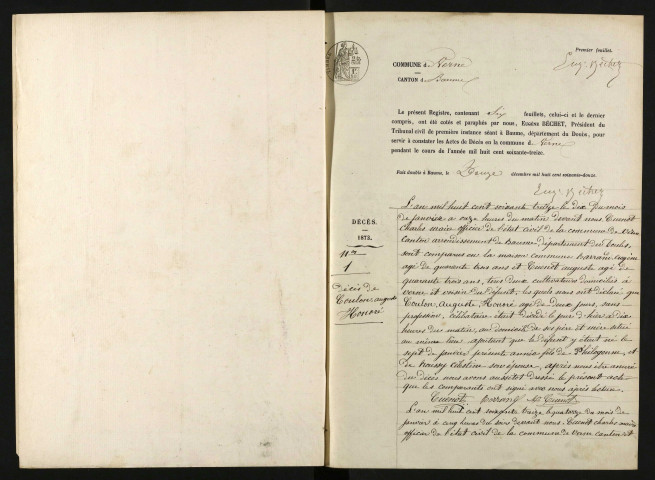 Premier feuillet.
COMMUNE de Verne
CANTON de Baume
Eug. Béchet
Le présent Registre, contenant six feuillets, celui-ci et le dernier
compris, ont été cotés et paraphés par nous, Eugène BÉCHET, Président du
Tribunal civil de première instance séant à Baume, département du Doubs, pour
servir à constater les Actes de Décès en la commune de Verne
pendant le cours de l'année mil huit cent soixante-treize.
Fait double à Baume, le douze décembre mil huit cent soixante-douze.
Eug. Béchet
DÉCÈS.
1873.
N°
1
Décès de
Coulon auguste
Honoré
L'an mil huit cent soixante treize le dix du mois
de janvier a onze heures du matin devant nous Cuenot
Charles maire officier de l'état civil de la commune de Verne
Canton arrondissement de Baume, département du Doubs,
sont comparus en la maison commune Eugène
agé de quarante trois ans et Cuenot auguste agé de
quarante trois ans, tous deux cultivateurs domiciliés à
verne et voisin du défunt, les quels nous ont déclaré que
Coulon, Auguste, Honoré agé de deux jours, sans
profession, célibataire était décédé le jour d'hier à dix
heures du matin, au domicile de ses père et mère situé
au même lieu ajoutant que le défunt y était né le
sept de janvier présente année fils de et
de Célestine son épouse, après nous être assuré
du décès nous avons aussitot dressé le présent acte
que les comparants ont signé avec nous après lecture.
Cuenot Cuenot
L'an mil huit cent soixante treize le quatorze du mois de
janvier à cinq heures du soir devant nous Cuenot charles maire
officier de l'état civil de la commune de Verne canton et